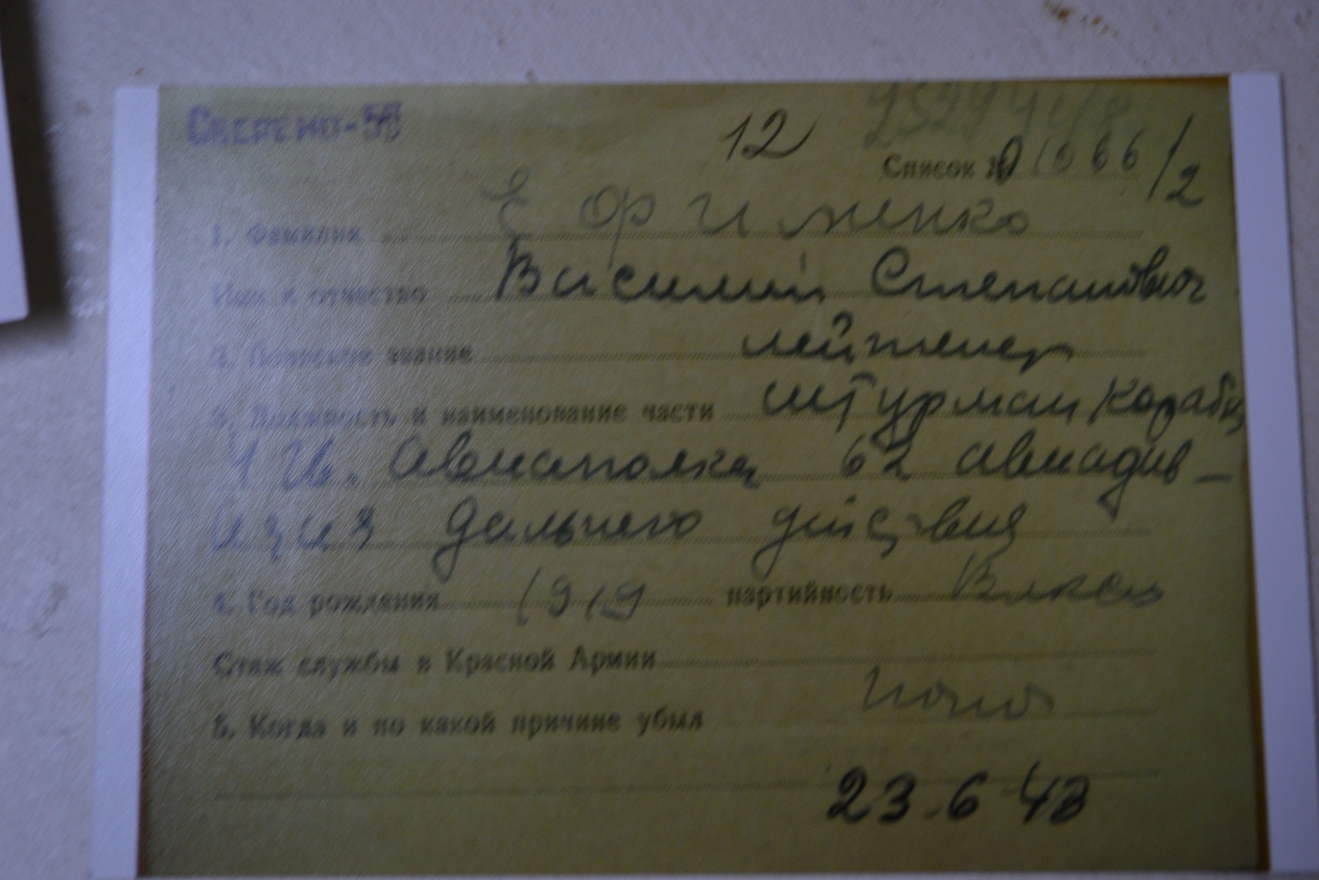 Сверено-58
12
Список № 01066/2
1. Фамилия Ефрименко
Имя и отчество Василий Степанович
2. Воинское звание лейтенант
3. Должность и наименование части штурман корабля
авиаполка 62 авиадив-
изия дальнего действия
4. Год рождения 1919 партийность
Стаж службы в Красной Армии
5. Когда и по какой причине убыл
23.6 43